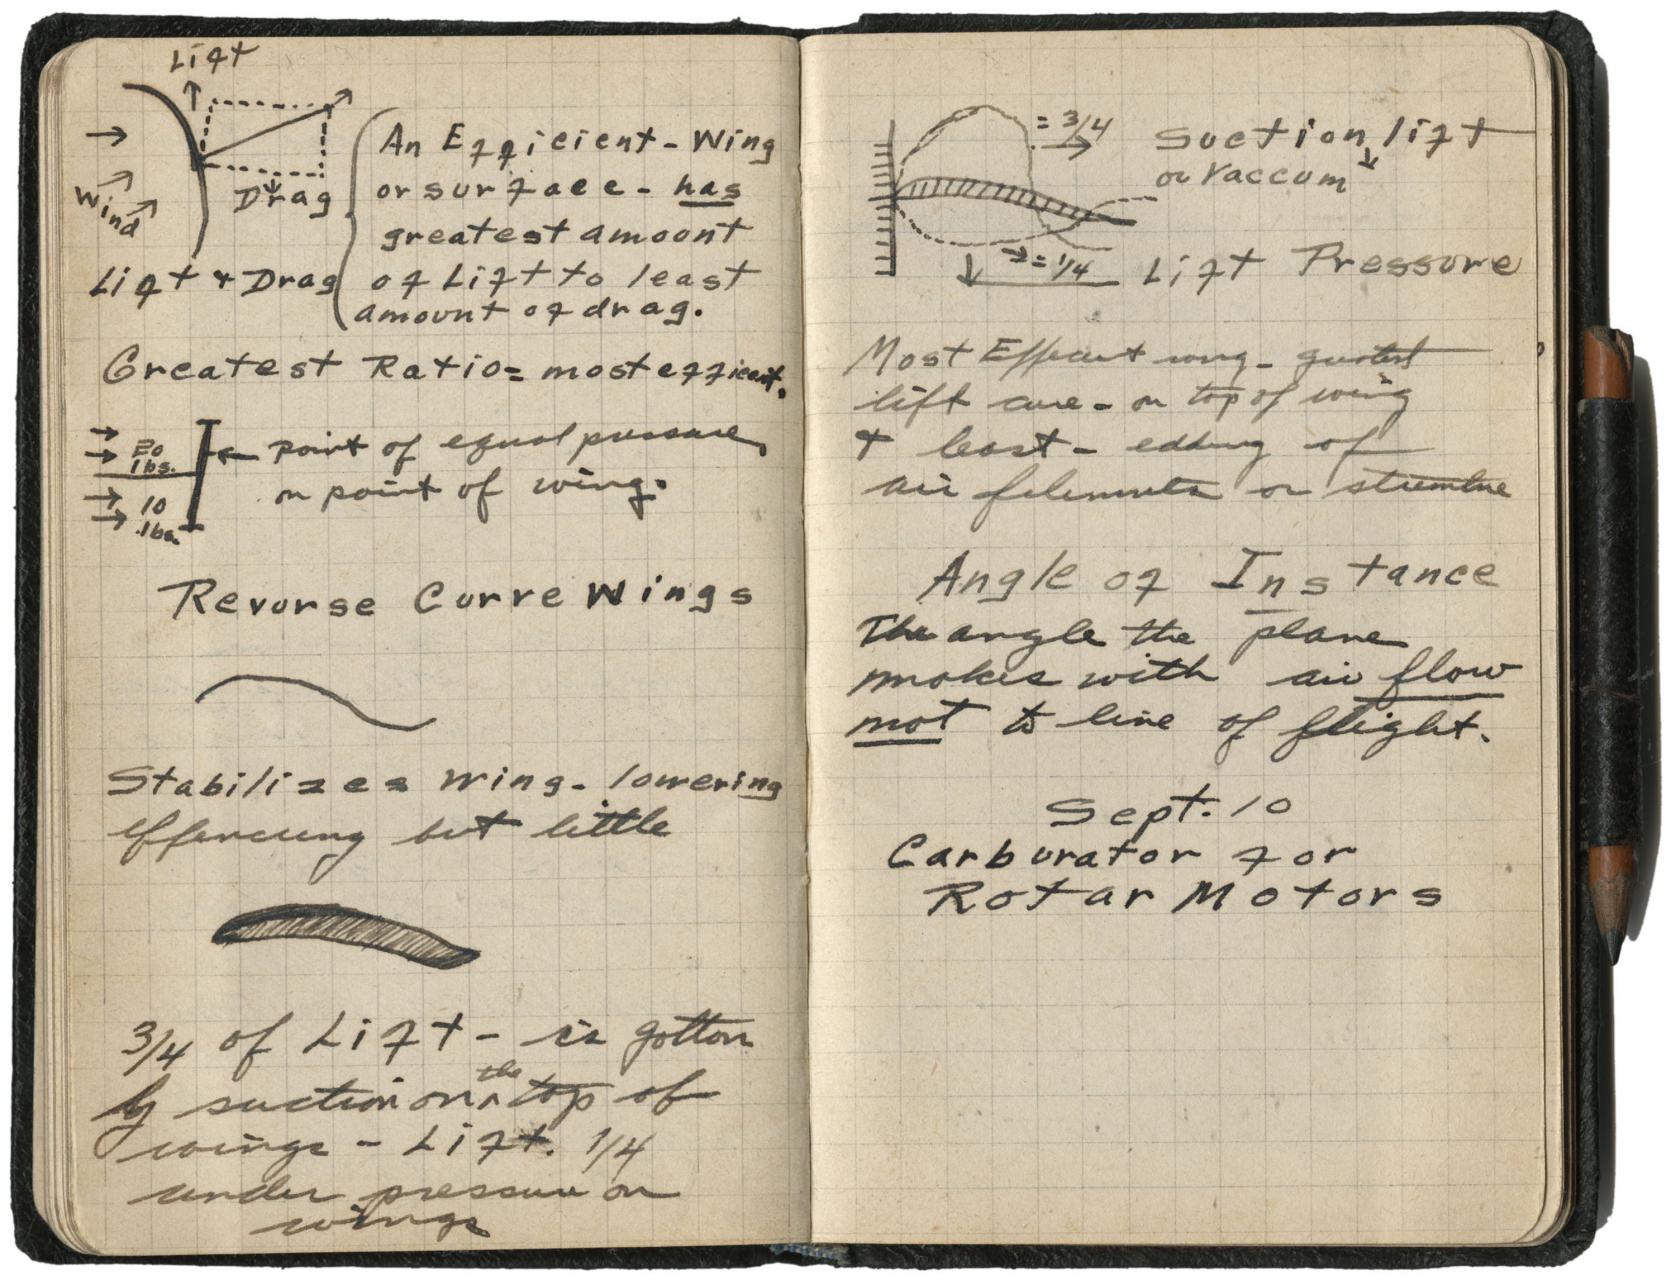 Lift
Wind
Drag
Lift + Drag
An Efficient - Wing
or surface - has
greatest amount
of Lift to least
amount of drag.
Greatest Ratio = most efficient.
20
lbs.
10
lbs.
point of equal pressure
on point of wing.
Reverse Curve Wings
Stabilizes wing - lowering
but little
3/4 of Lift - is gotton
by suction on the top of
wings - Lift. 1/4
under pressure on
wings
= 3/4
Suction lift
or Vaccum
= 1/4
Lift Pressure
Most wing - greatest
lift - on top of wing
+ least - edding of
air filements or
Angle of Instance
The angle the plane
makes with air flow
not to line of flight.
Sept. 10
Carburator for
Rotar Motors